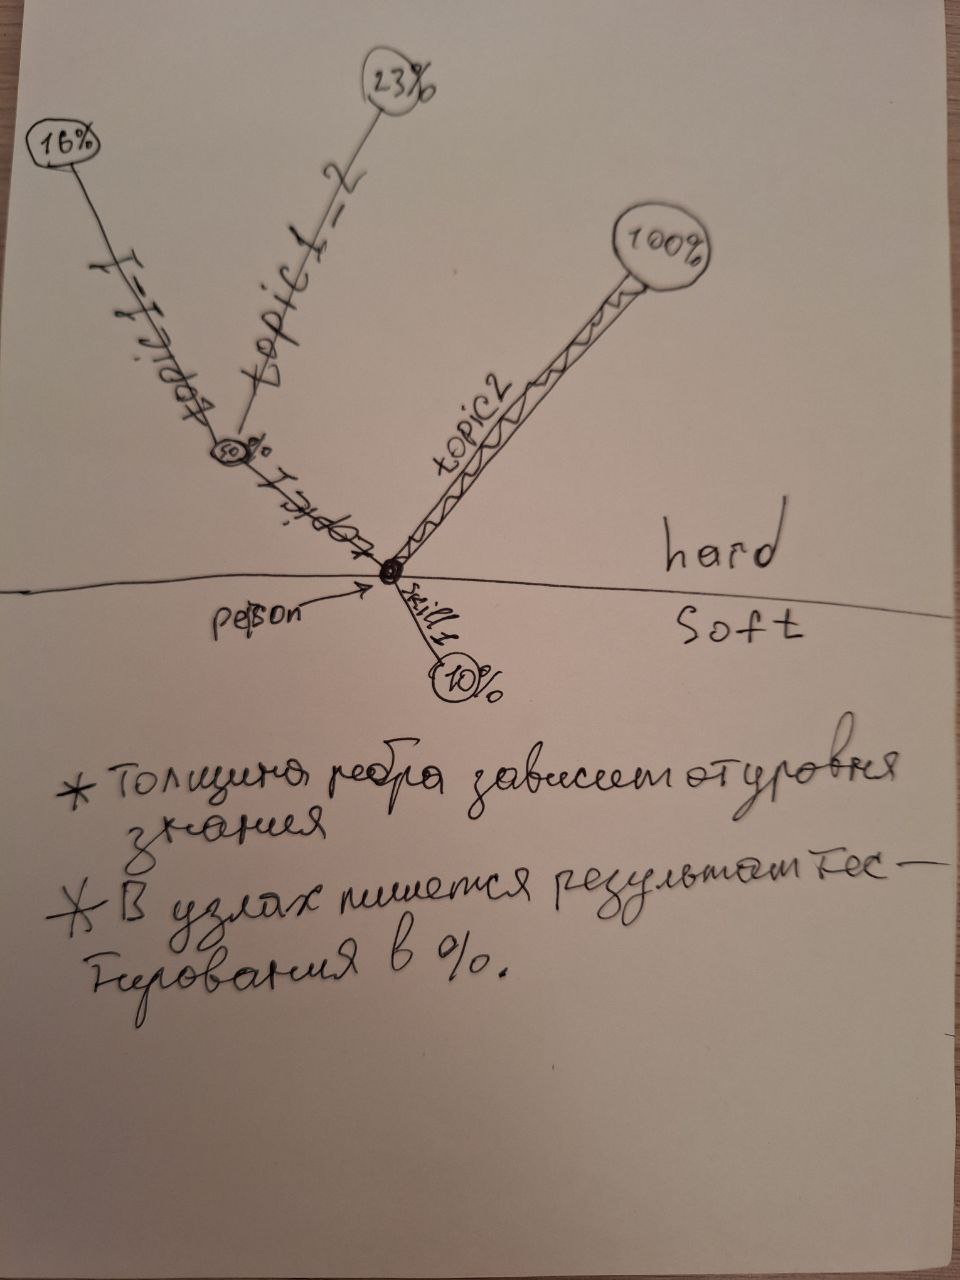 23%
16%
100%
topic 1-2
topic 1-1
topic 2
50%
topic 1
hard
person
skill 1
soft
10%
* Толщина ребра зависит от уровня
знания
* В узлах пишется результат тес-
тирования в %.